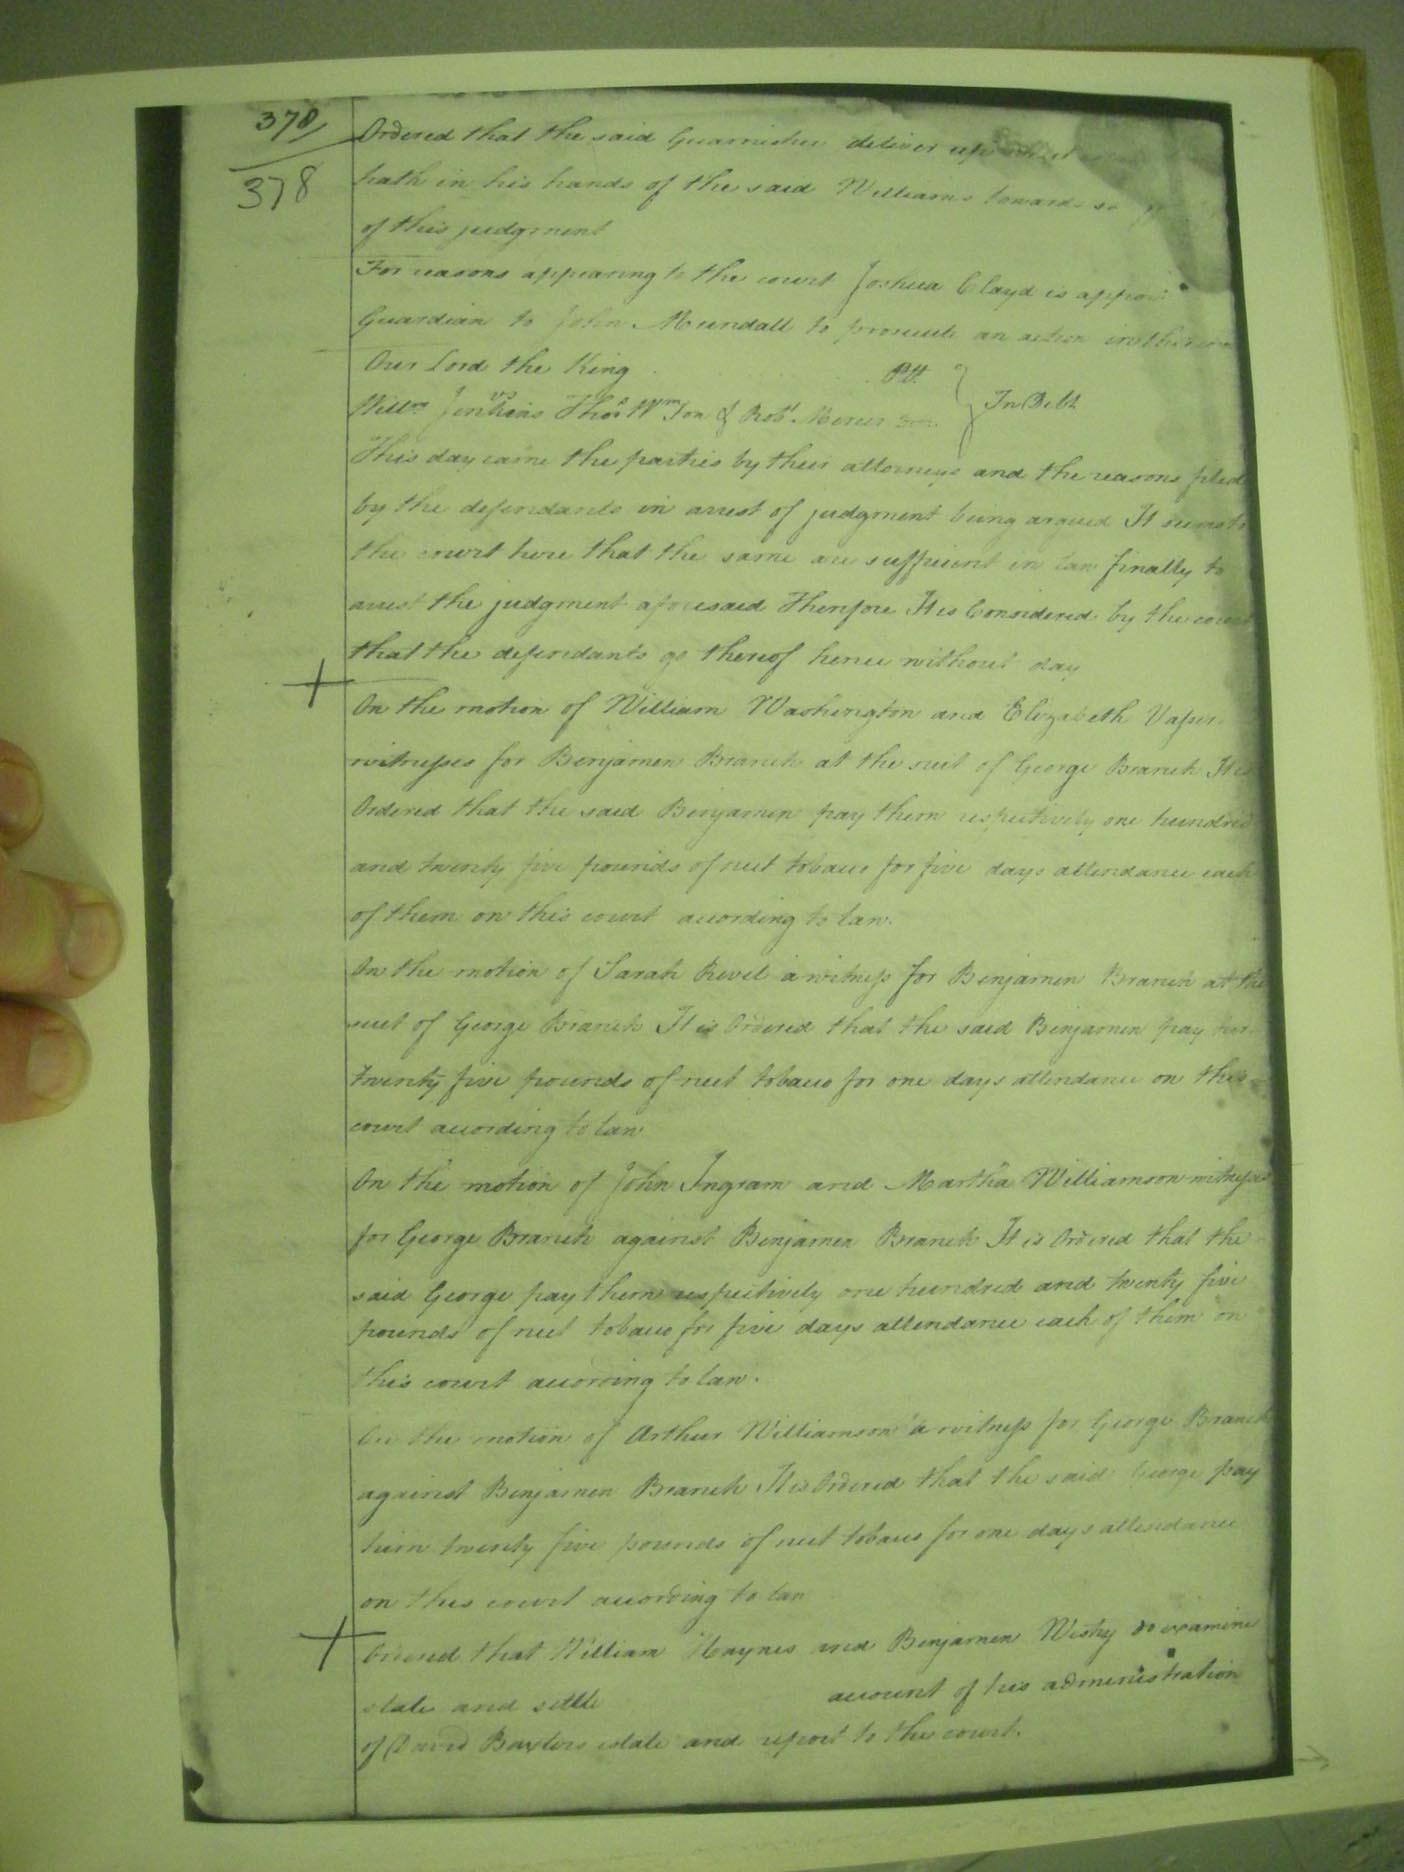 378/
378
Ordered that the said Guarnishee deliver up
hath in his hands of the said Williams towards
of this judgment
For reasons appearing to the court Joshua Clayd is appoi
Guardian to John Mundall to prosecute an action in this
Our Lord the King Plt.
vs In Debt
Willm Jenkins Thos Wm Jon & Robt Mercer
This day came the parties by their attorneys and the reasons filed
by the defendants in arrest of judgment being argued It seems to
the court here that the same are sufficient in law finally to
arrest the judgment aforesaid Therefore It is Considered by the court
that the defendants go thereof hence without day
On the motion of William Washington and Elizabeth
witnesses for Benjamen Branch at the suit of George Branch It is
Ordered that the said Benjamen pay them respectively one hundred
and twenty five pounds of neet tobacco for five days attendance each
of them on this court according to law.
On the motion of Sarah Revel a witness for Benjamen Branch at the
suit of George Branch It is Ordered that the said Benjamen pay her
twenty five pounds of neet tobacco for one days attendance on this
court according to law
On the motion of John Ingram and Martha Williamson witnesses
for George Branch against Benjamen Branch It is Ordered that the
said George pay them respectively one hundred and twenty five
pounds of neet tobacco for five days attendance each of them on
this court according to law.
On the motion of Arthur Williamson a witness for George Branch
against Benjamen Branch It is Ordered that the said George pay
him twenty five pounds of neet tobacco for one days attendance
on this court according to law
Ordered that William Haynes and Benjamen Westry do examine
state and settle account of his administration
of David Baxters estate and report to the court.